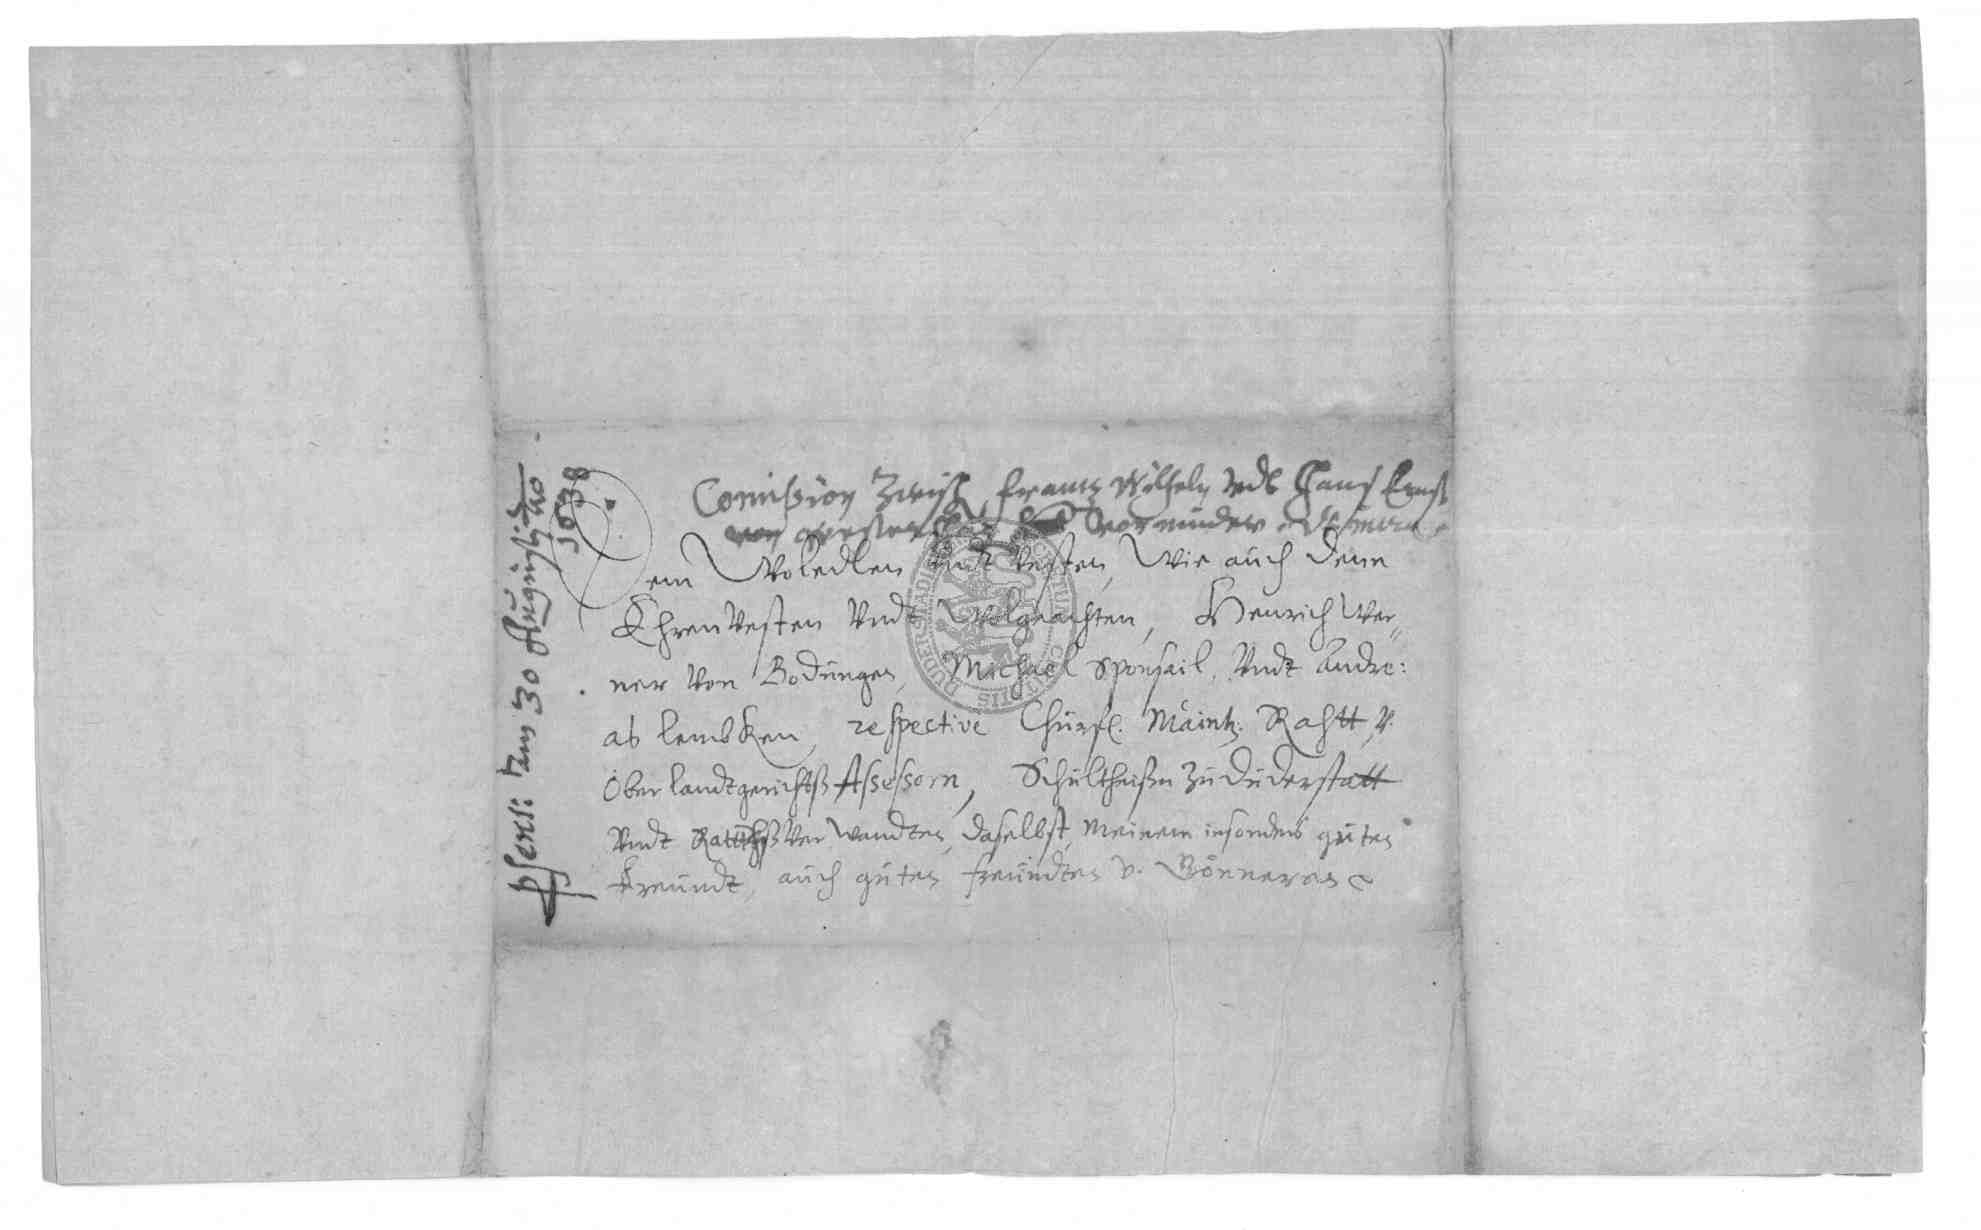 Comission Zwisch Frantz Wilhelm vndt Hans Ernst
von Vormünder
Dem WolEdlen Vndt Vesten, Wie auch denn
EhrenVesten Vndt Wolgeachten, Henrich Wer-
ner Von Bodungen, Michael Sponsail, Vndt Andre:
as Lembken, respective Churfl. Mäintz. Rahtt, v.
OberLandtgerichtß Assessorn, Schultheißen zu Duderstatt
Vndt RattßVerwandten daselbst, Meinem insonders guten
Freundt, auch guten freundten v. Gönneren
Psent: den 30 Augusti Ao
1638